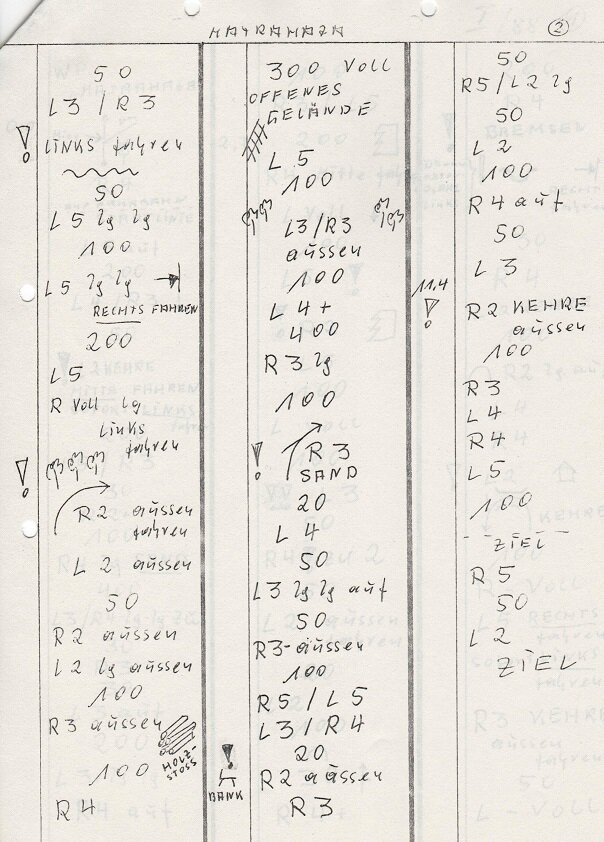 MAYRAMAZA
2
50
L3 / R3
! LINKS fahren
50
L5 lg lg
100
L5 lg lg
RECHTS FAHREN
200
L5
R Voll lg
LINKS
fahren
!
R2 aüssen
fahren
L2 aüssen
50
R2 aüssen
L2 lg aüssen
100
R3 aüssen
HOLZ-
STOSS
100
R4
300 Voll
OFFENES
GELÄNDE
L5
100
L3/R3
aüssen
100
L4+
400
R3 lg
100
! R3
SAND
20
L4
50
L3 lg lg auf
50
R3- aüssen
100
R5 / L5
L3 / R4
20
! R2 aüssen
BANK
R3
50
R5 / L2 lg
50
L2
100
R4 auf
50
L3
11,4
! R2 KEHRE
aüssen
100
R3
L4
R4
L5
100
ZIEL
R5
50
L2
ZIEL